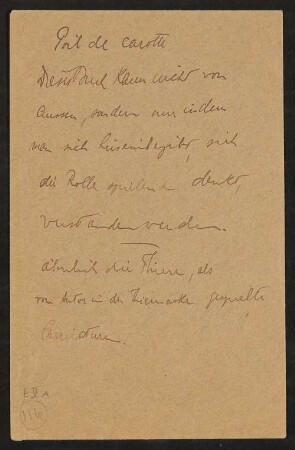 Poil de carotte
Dieses Buch kann nicht von
aussen, sondern nur indem
man sich hineinbegibt, sich
die Rolle spielend denkt,
verstanden werden.
ähnlich die Thiere, als
vom Autor in der Tiermaske gespielte
E IV A
116